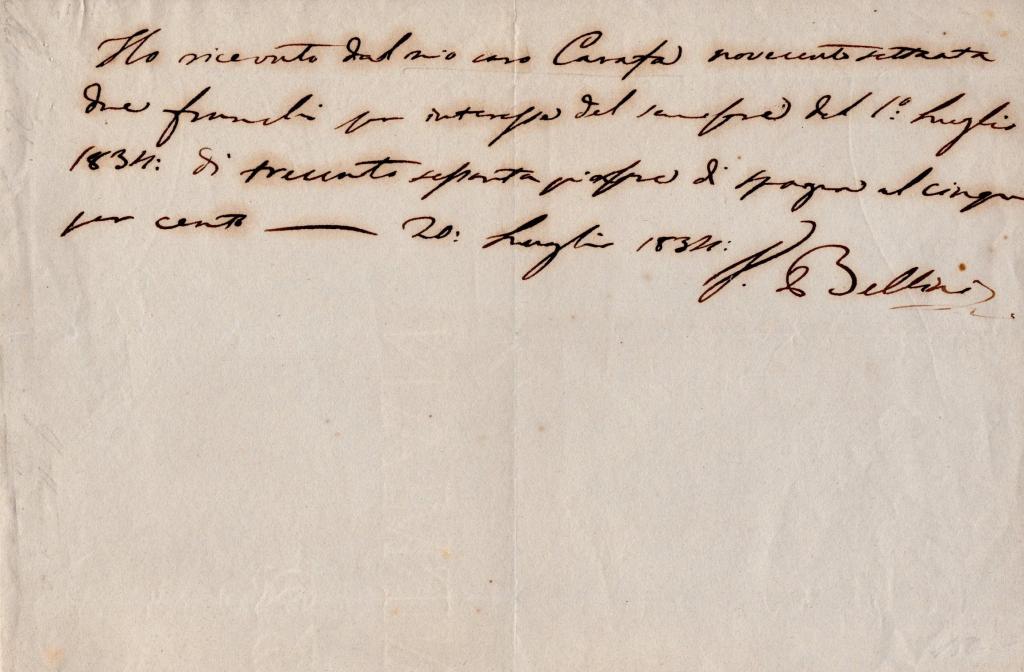 Ho ricevuto dal mio caro Carafa novecento settanta
due franchi per interesse del semestre del 1º: Luglio
1834: di trecento sessanta piastre di Spagna al cinque
per cento —— 20: Luglio 1834:
V. Bellini